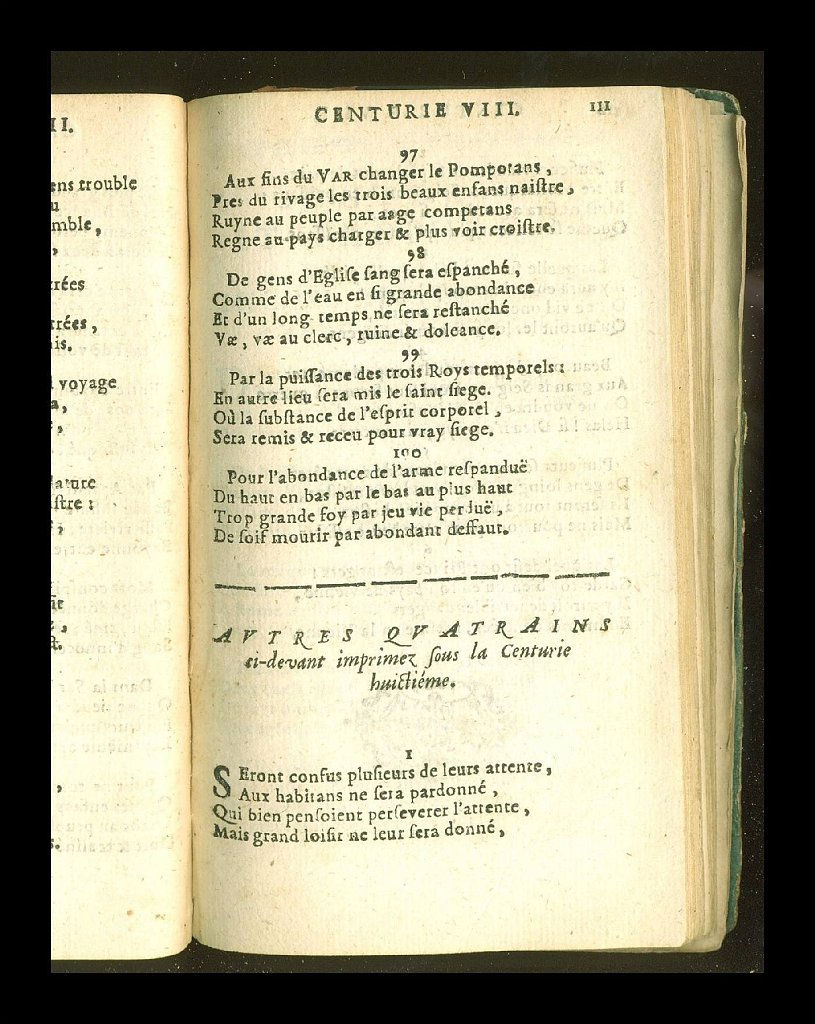 II.
ens trouble
u
mble,
,
trées
trées,
is.
l voyage
a,
,
lature
iſtre :
,
it
,
t.
,
s.
CENTURIE VIII. 111
97
Aux fins du VAR changer le Pompotans,
Pres du rivage les trois beaux enfans naiſtre,
Ruyne au peuple par aage competans
Regne au pays charger & plus voir croiſtre.
98
De gens d'Egliſe ſang ſera eſpanché,
Comme de l'eau en ſi grande abondance
Et d'un long temps ne ſera reſtanché
Væ, væ au clerc, ruine & doleance.
99
Par la puiſſance des trois Roys temporels :
En autre lieu ſera mis le ſaint ſiege.
Où la ſubſtance de l'eſprit corporel,
Sera remis & receu pour vray ſiege.
100
Pour l'abondance de l'arme reſpanduë
Du haut en bas par le bas au plus haut
Trop grande foy par jeu vie perduë,
De ſoif mourir par abondant deffaut.
AVTRES QVATRAINS
ci-devant imprimez ſous la Centurie
huictiéme.
1
SEront confus pluſieurs de leurs attente,
Aux habitans ne ſera pardonné,
Qui bien penſoient perſeverer l'attente,
Mais grand loiſir ne leur ſera donné,